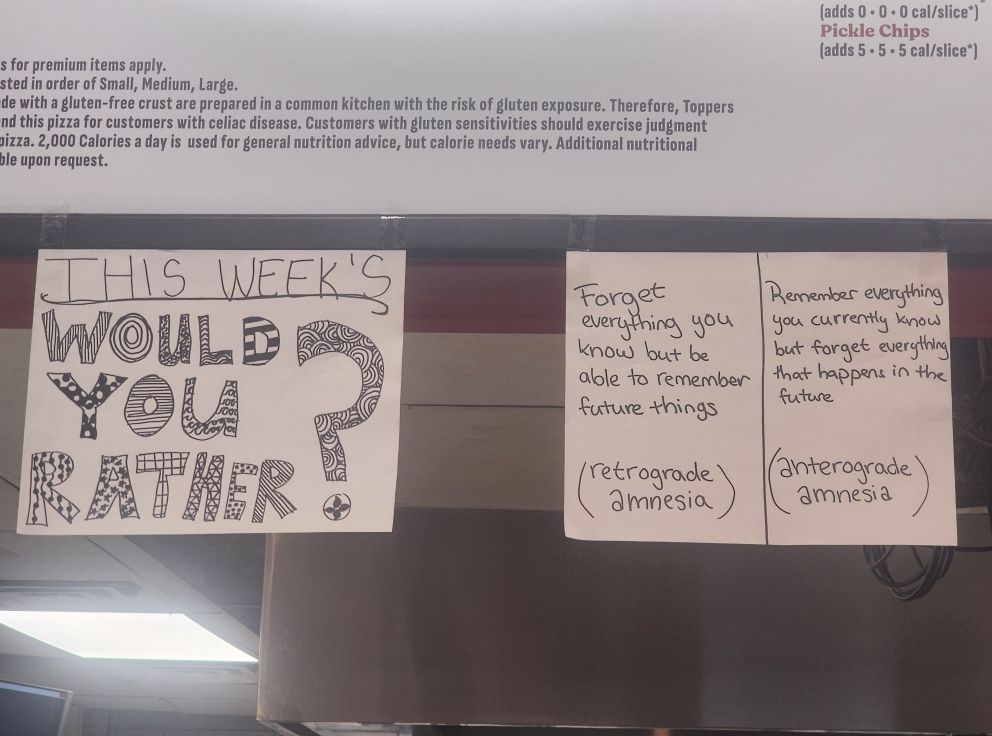 (adds 0 • 0 • 0 cal/slice*)
Pickle Chips
(adds 5 • 5 • 5 cal/slice*)
s for premium items apply.
sted in order of Small, Medium, Large.
de with a gluten-free crust are prepared in a common kitchen with the risk of gluten exposure. Therefore, Toppers
nd this pizza for customers with celiac disease. Customers with gluten sensitivities should exercise judgment
pizza. 2,000 Calories a day is used for general nutrition advice, but calorie needs vary. Additional nutritional
ble upon request.
THIS WEEK'S
WOULD
YOU
RATHER?
Forget
everything you
know but be
able to remember
future things
(retrograde
amnesia)
Remember everything
you currently know
but forget everything
that happens in the
future
(anterograde
amnesia)